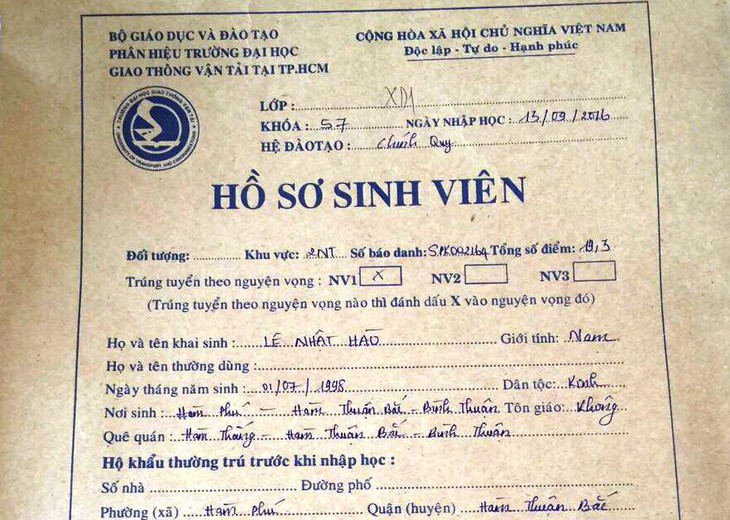 BỘ GIÁO DỤC VÀ ĐÀO TẠO
PHÂN HIỆU TRƯỜNG ĐẠI HỌC
GIAO THÔNG VẬN TẢI TẠI TP.HCM
CỘNG HÒA XÃ HỘI CHỦ NGHĨA VIỆT NAM
Độc lập - Tự do - Hạnh phúc
TRƯỜNG ĐẠI HỌC GIAO THÔNG VẬN TẢI
UNIVERSITY OF TRANSPORT AND COMMUNICATIONS
LỚP : XD1
KHÓA : 57 NGÀY NHẬP HỌC : 13/09/2016
HỆ ĐÀO TẠO : Chính Quy
HỒ SƠ SINH VIÊN
Đối tượng: Khu vực: 2NT Số báo danh: SPK002164 Tổng số điểm: 19,3
Trúng tuyển theo nguyện vọng : NV1 X NV2 NV3
(Trúng tuyển theo nguyện vọng nào thì đánh dấu X vào nguyện vọng đó)
Họ và tên khai sinh : LÊ NHẬT HÀO Giới tính: Nam
Họ và tên thường dùng :
Ngày tháng năm sinh : 01/07/1998 Dân tộc: Kinh
Nơi sinh : Hàm Phú - Hàm Thuận Bắc - Bình Thuận Tôn giáo: Không
Quê quán : Hàm Thắng - Hàm Thuận Bắc - Bình Thuận
Hộ khẩu thường trú trước khi nhập học :
Số nhà Đường phố
Phường (xã) : Hàm Phú Quận (huyện) : Hàm Thuận Bắc